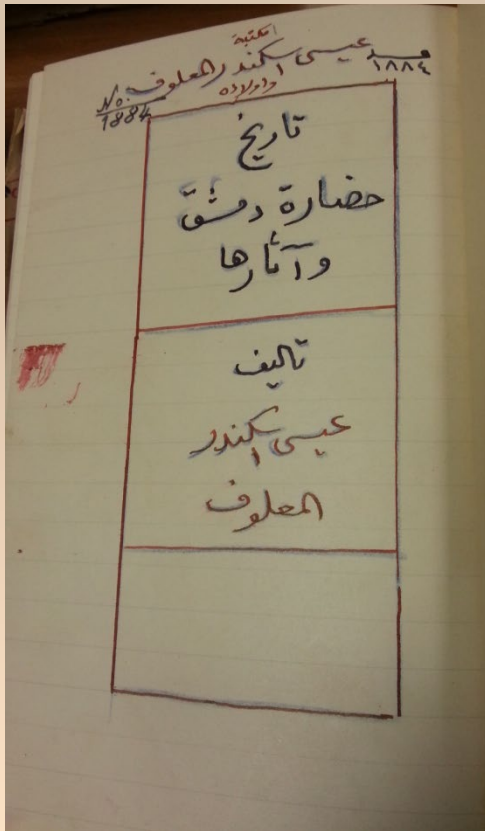 مكتبة
عيسى اسكندر المعلوف
واولاده
١٨٨٤
No.
1884
تاريخ
حضارة دمشق
وآثارها
تاليف
عيسى اسكندر
المعلوف